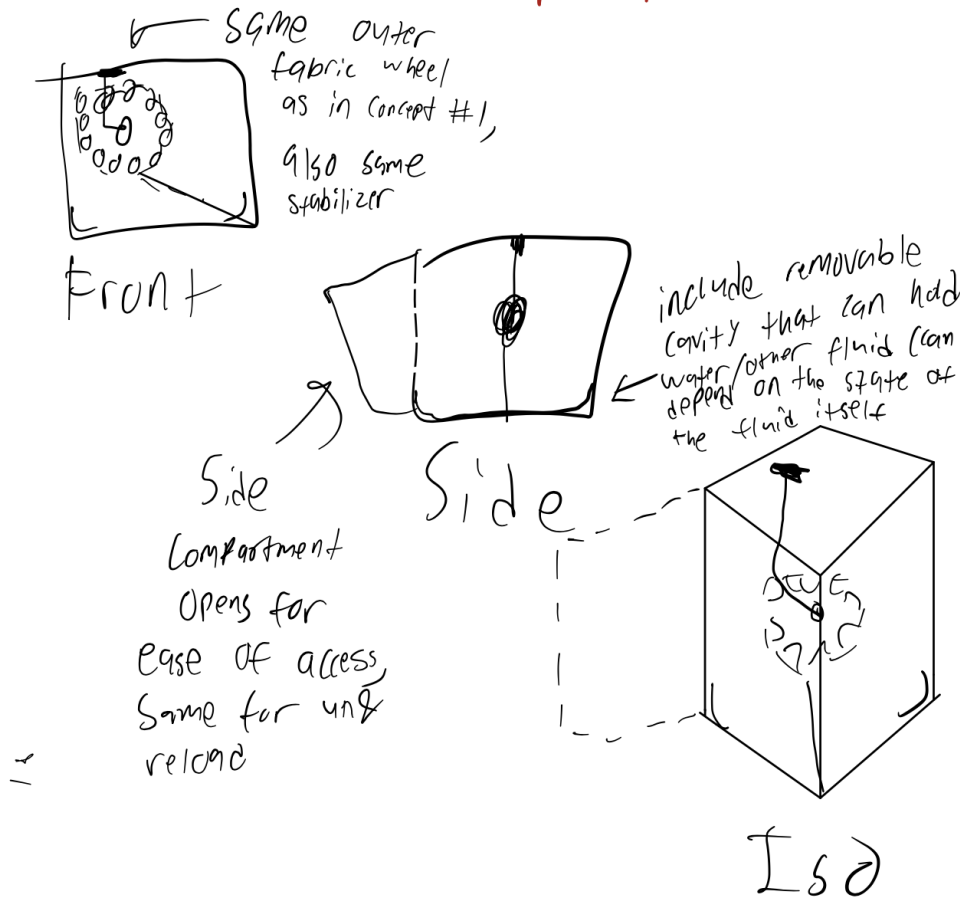 Same outer
fabric wheel
as in concept #1,
also same
stabilizer
Front
include removable
cavity that can hold
water/other fluid (can
depend on the state of
the fluid itself
Side
Side
Compartment
opens for
ease of access,
Same for un&
reload
Iso